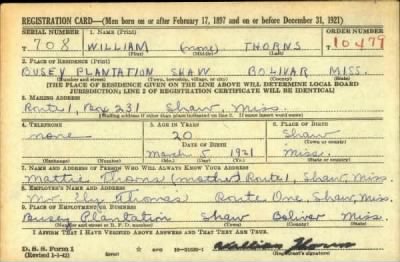 REGISTRATION CARD—(Men born on or after February 17, 1897 and on or before December 31, 1921)
SERIAL NUMBER 1. NAME (Print) ORDER NUMBER
T 708 WILLIAM (none) THORNS 10479
(First) (Middle) (Last)
2. PLACE OF RESIDENCE (Print)
BUSEY PLANTATION SHAW BOLIVAR MISS.
(Number and street) (Town, township, village, or city) (County) (State)
(THE PLACE OF RESIDENCE GIVEN ON THE LINE ABOVE WILL DETERMINE LOCAL BOARD
JURISDICTION; LINE 2 OF REGISTRATION CERTIFICATE WILL BE IDENTICAL)
3. MAILING ADDRESS
Route 1, Box 231 Shaw, Miss.
(Mailing address if other than place indicated on line 2. If same insert word same)
4. TELEPHONE 5. AGE IN YEARS 6. PLACE OF BIRTH
none 20 Shaw
DATE OF BIRTH (Town or county)
March 5 1921 Miss.
(Exchange) (Number) (Mo.) (Day) (Yr.) (State or country)
7. NAME AND ADDRESS OF PERSON WHO WILL ALWAYS KNOW YOUR ADDRESS
Mattie Thorns (mother) Route 1, Shaw, Miss.
8. EMPLOYER'S NAME AND ADDRESS
Mr. Ely Thomas Route One, Shaw, Miss.
9. PLACE OF EMPLOYMENT OR BUSINESS
Busey Plantation Shaw Boliver Miss.
(Number and street or R. F. D. number) (Town) (County) (State)
I AFFIRM THAT I HAVE VERIFIED ABOVE ANSWERS AND THAT THEY ARE TRUE.
D. S. S. Form 1
(Revised 1-1-42) (over) William Thorns